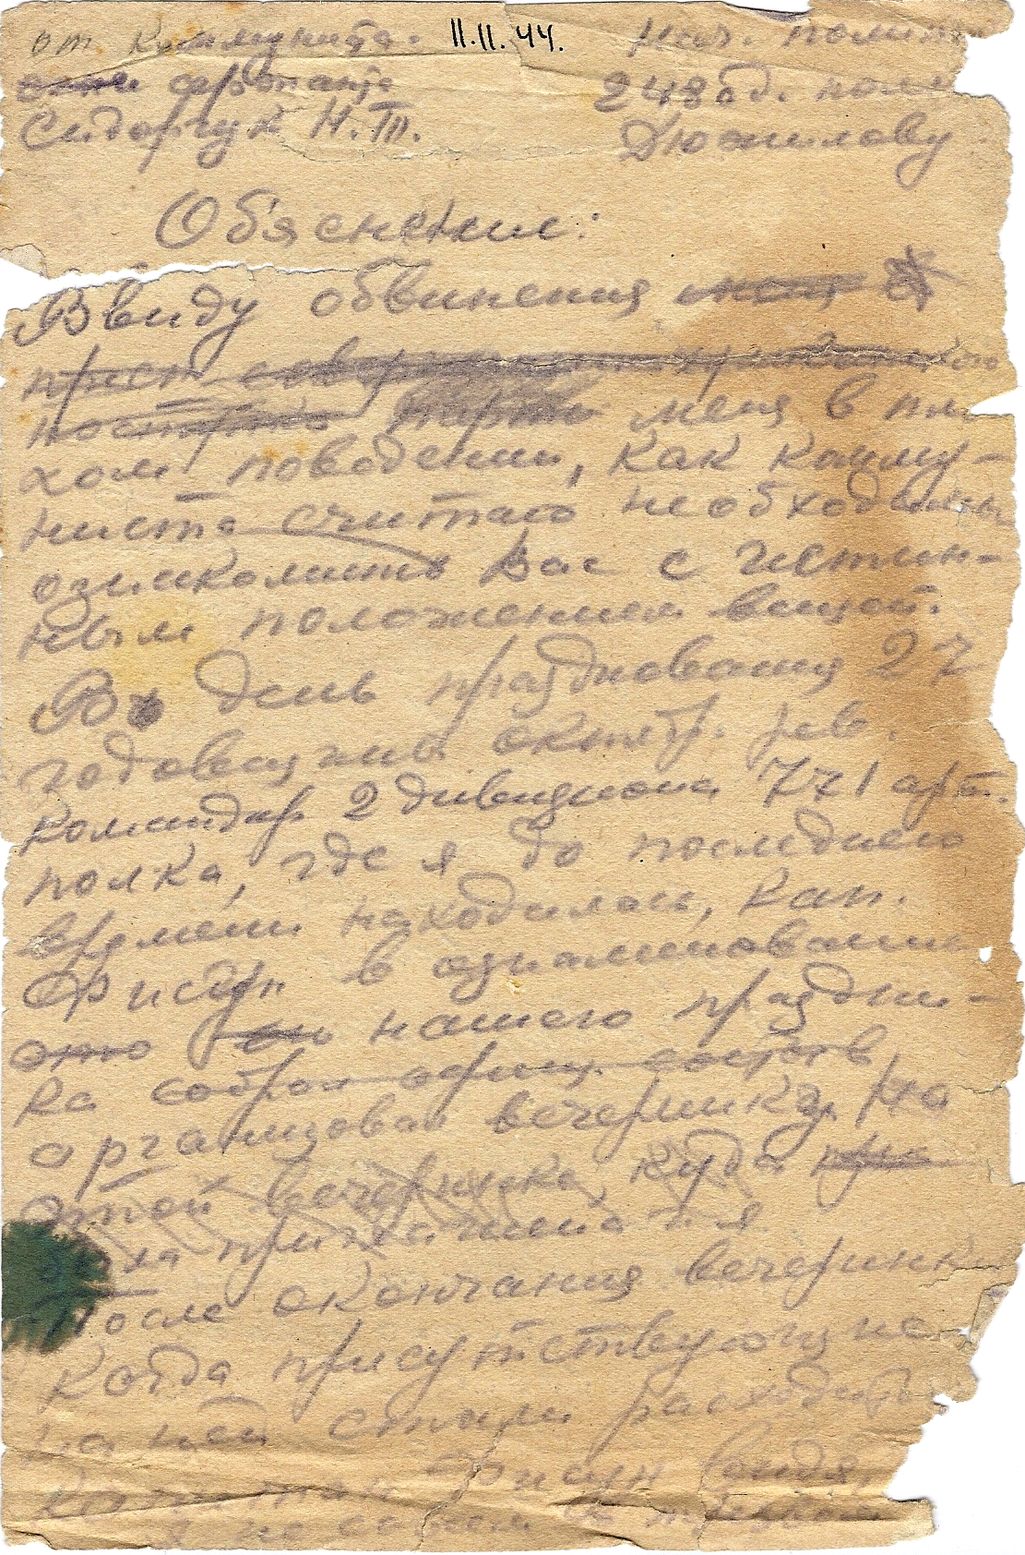 от Коммуниста. 11.11.44. Нач. полит
248 од. пол
Сидорчук Н.Т. Дюжилову
Обяснение:
Ввиду обвинения моего в
прест
меня в пло
хом поведении, как комму-
ниста считаю необходимы
ознакомить Вас с истин-
ным положением вещей.
В день празднования 27
годовщины октятр. рев.
командир 2 дивизиона 771 арт.
полка, где я до последнего
времени находилась, кап.
Фисун в ознаменовании
это нашего праздни-
ка собрал офиц. состав,
организовал вечеринку, на
этой вечеринке, куда
приглашена и я.
После окончания вечеринки
Когда присутствующие
на ней стали расходить
Капитан Фисун видя,
я не совсем